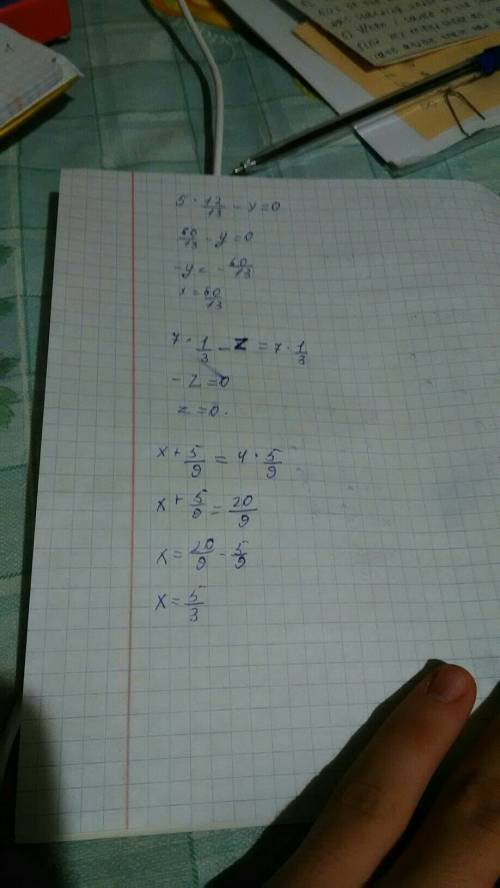 5 · 12/13 - y = 0
60/13 - y = 0
-y = - 60/13
x = 60/13
7 · 1/3 - z = 7 · 1/3
- z = 0
z = 0.
x + 5/9 = 4 · 5/9
x + 5/9 = 20/9
x = 20/9 - 5/9
x = 5/3